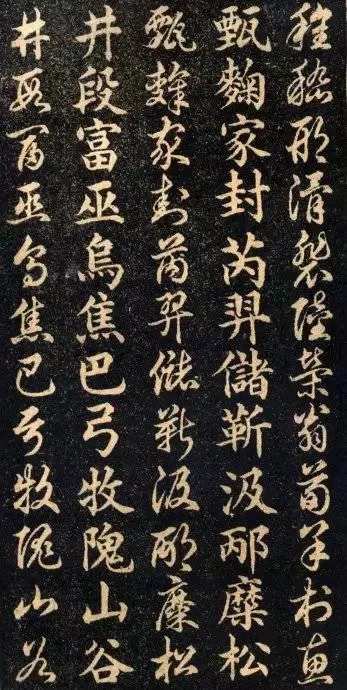 程嵇邢滑裴陸榮翁荀羊於惠
甄麴家封芮羿儲靳汲邴糜松
甄麴家封芮羿儲靳汲邴糜松
井段富巫烏焦巴弓牧隗山谷
井段富巫烏焦巴弓牧隗山谷